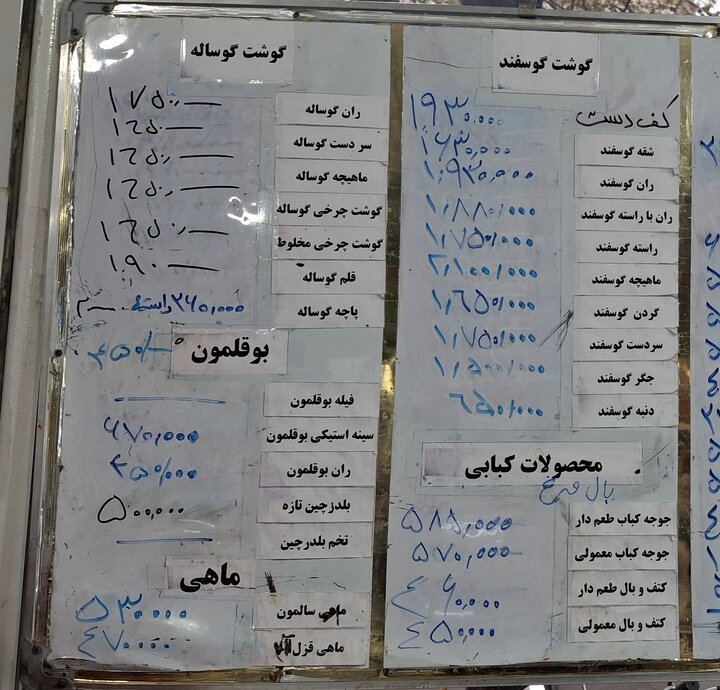 گوشت گوسفند
کف دست ۱۹۳۰,۰۰۰
شقه گوسفند ۱۶۳۰,۰۰۰
ران گوسفند ۱,۹۳۰,۰۰۰
ران با راسته گوسفند ۱,۸۸۰,۰۰۰
راسته گوسفند ۱,۷۵۰,۰۰۰
ماهیچه گوسفند ۲,۱۰۰,۰۰۰
گردن گوسفند ۱,۶۵۰,۰۰۰
سردست گوسفند ۱,۷۵۰,۰۰۰
جگر گوسفند ۱,۵۰۰,۰۰۰
دنبه گوسفند ۶۵۰,۰۰۰
محصولات کبابی
بال مرغ
جوجه کباب طعم دار ۵۸۵,۰۰۰
جوجه کباب معمولی ۵۷۰,۰۰۰
کتف و بال طعم دار ۴۶۰,۰۰۰
کتف و بال معمولی ۴۵۰,۰۰۰
گوشت گوساله
ران گوساله ۱۷۵۰,—
سر دست گوساله ۱۶۵۰—
ماهیچه گوساله ۱۶۵۰,—
گوشت چرخی گوساله ۱۶۵۰,—
گوشت چرخی مخلوط ۱۶۵۰—
قلم گوساله ۱۹۰—
پاچه گوساله راسته ۲۶۰,۰۰۰
بوقلمون ۴۵۰/—
فیله بوقلمون —
سینه استیکی بوقلمون ۶۷۰,۰۰۰
ران بوقلمون ۴۵۰,۰۰۰
بلدرچین تازه ۵۰۰,۰۰۰
تخم بلدرچین —
ماهی
ماهی سالمون ۵۳۰۰۰۰
ماهی قزل ۴۷۰۰۰۰